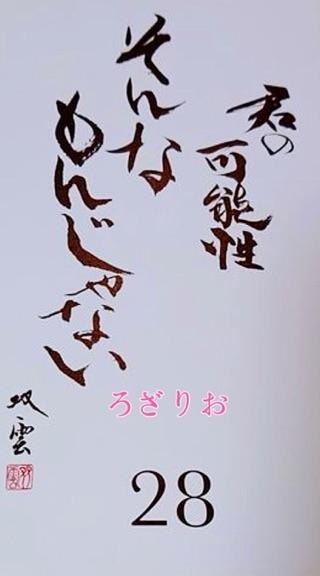 君の
可能性
そんな
もんじゃない
双雲
ろざりお
28